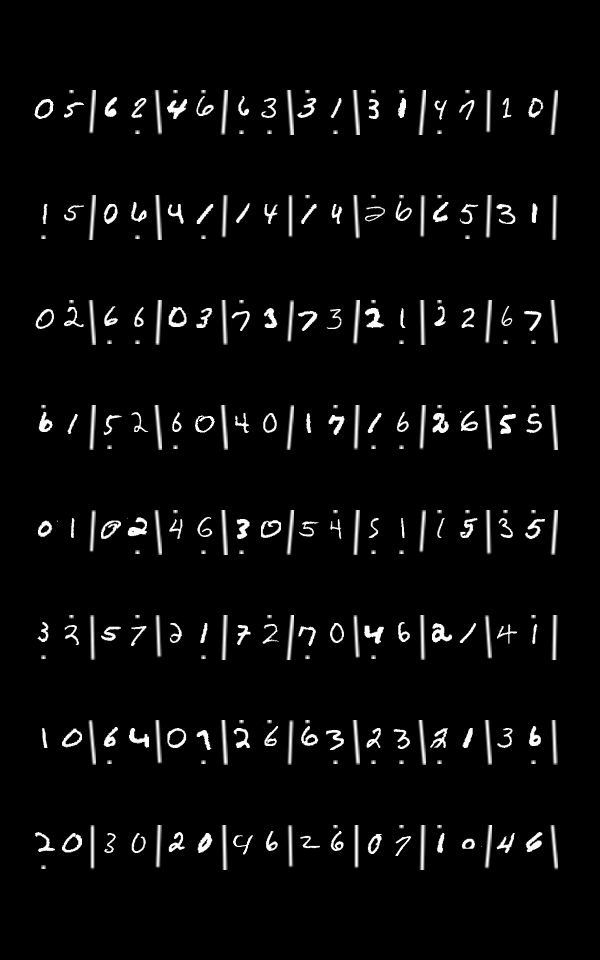 0 5 | 6 2 | 4 6 | 6 3 | 3 1 | 3 1 | 4 7 | 1 0 |
1 5 | 0 6 | 4 1 | 1 4 | 1 4 | 2 6 | 6 5 | 3 1 |
0 2 | 6 6 | 0 3 | 7 3 | 7 3 | 2 1 | 2 2 | 6 7 |
6 1 | 5 2 | 6 0 | 4 0 | 1 7 | 1 6 | 2 6 | 5 5 |
0 1 | 0 2 | 4 6 | 3 0 | 5 4 | 5 1 | 1 5 | 3 5 |
3 2 | 5 7 | 2 1 | 7 2 | 7 0 | 4 6 | 2 1 | 4 1 |
1 0 | 6 4 | 0 7 | 2 6 | 6 3 | 2 3 | 2 1 | 3 6 |
2 0 | 3 0 | 2 0 | 4 6 | 2 6 | 0 7 | 1 0 | 4 6 |